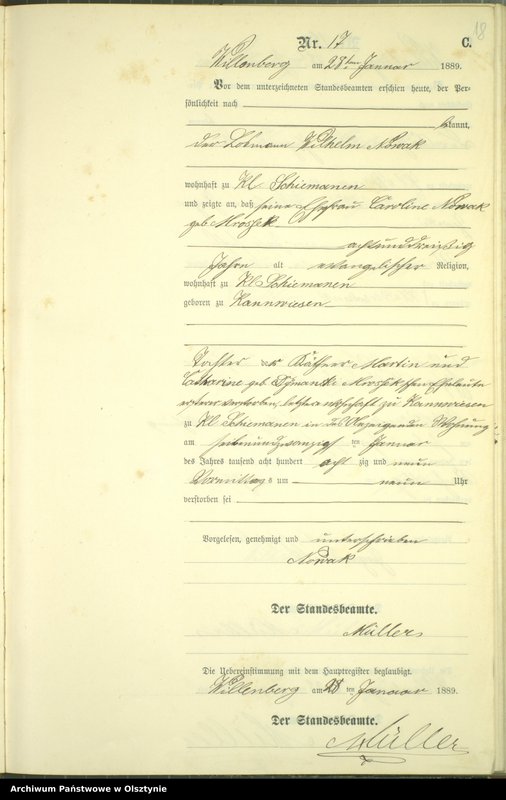 18
Nr. 17 C.
Willenberg am 28ten Januar 1889.
Vor dem unterzeichneten Standesbeamten erschien heute, der Per-
sönlichkeit nach
bekannt,
der Wilhelm Nowak
wohnhaft zu Kl. Schiemanen
und zeigte an, daß seine Ehefrau Caroline Nowak
geb. Mrossek
achtunddreißig
Jahre alt evangelischer Religion,
wohnhaft zu Kl. Schiemanen
geboren zu Kannwiesen
Tochter der Käthner Martin und
Catharine geb. Mrossek'schen Eheleute
ersterer verstorben, letztere wohnhaft zu Kannwiesen
zu Kl. Schiemanen in des Anzeigenden Wohnung
am siebenundzwanzigsten Januar
des Jahres tausend acht hundert achtzig und neun
Vormittags um neun Uhr
verstorben sei
Vorgelesen, genehmigt und unterschrieben
Nowak
Der Standesbeamte.
Müller
Die Uebereinstimmung mit dem Hauptregister beglaubigt.
Willenberg am 28 ten Januar 1889.
Der Standesbeamte.
Müller
Archiwum Państwowe w Olsztynie